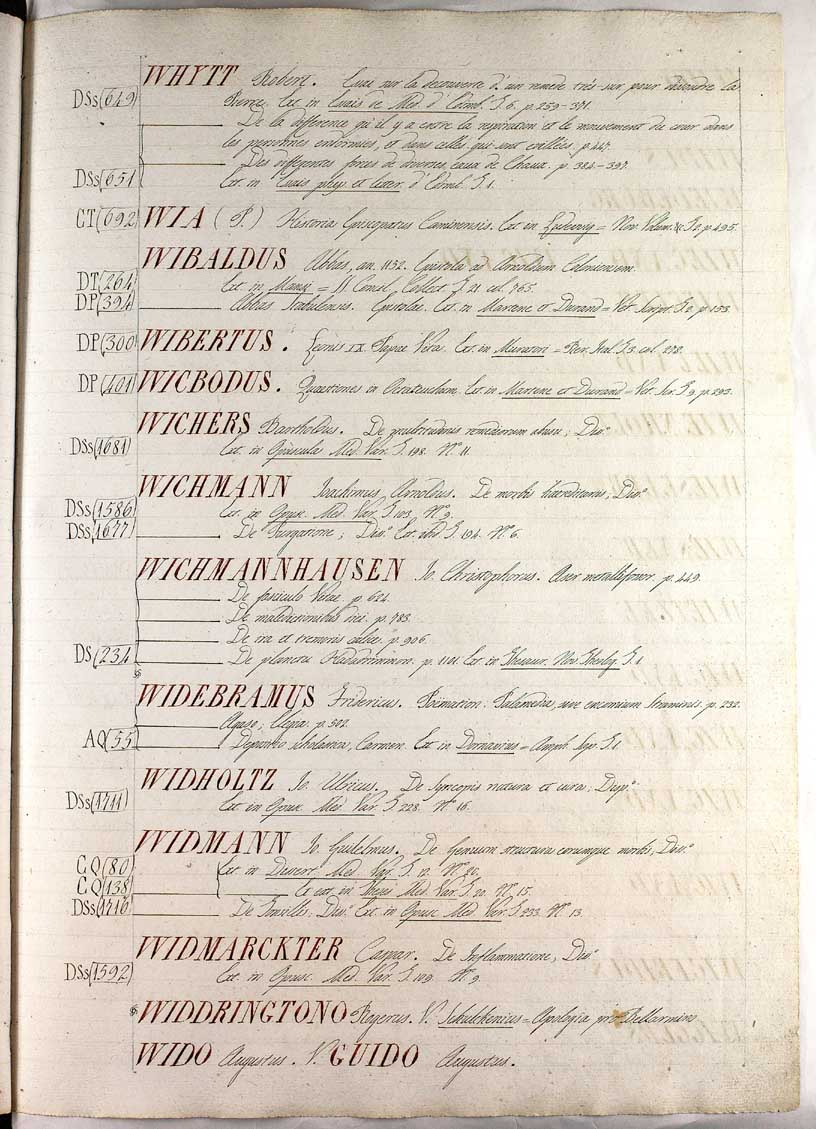 WHYTT Robert. Essai sur la decouverte d'un remede très-sur pour dissoudre la
DSs(649 Pierre. Ext. in Essais de Med. d'Edimb. T. 6. p. 259-371.
De la difference qu'il y a entre la respiration et le mouvement du coeur dans
les personnes endormies, et dans celles qui sont eveillées. p. 447.
Des differentes forces de diverses eaux de Chaux. p. 384-397.
DSs(651 Ext. in Essais phys. et litter. d'Edimb. T. 1.
CT(692 WIA (P.) Historia Episcopatus Caminensis. Ext. in Ludewig = Nov. Volum. &c. T. 2. p. 495.
WIBALDUS Abbas, an. 1132. Epistola ad Arnoldum Coloniensem.
DT(264 Ext. in Mansi = SS. Concil. Collect. T. 21. col. 765.
DP(394 Abbas Stabulensis. Epistolae. Ext. in Martene et Durand = Vet. Script. T. 2. p. 153.
DP(300 WIBERTUS. Leonis IX. Papae Vita. Ext. in Muratori = Rer. Ital. T. 3. col. 278.
DP(401 WICBODUS. Quaestiones in Octateuchum. Ext. in Martene et Durand = Vet. Scr. T. 9. p. 293.
WICHERS Bartholdus. De remediorum abusu; Diss.
DSs(1681 Ext. in Opuscules Med. Var. T. 198. N. 11.
WICHMANN Joachimus Arnoldus. De morbis haereditariis; Diss.
DSs(1586 Ext. in Opusc. Med. Var. T. 103. N. 9.
DSs(1677 De Purgatione; Diss. Ext. ibid. T. 194. N. 6.
WICHMANNHAUSEN Jo. Christophorus. p. 449.
De fasciculo Vitae. p. 624.
De maledictionibus p. 783.
De ira et tremoris calice. p. 906.
DS(234 De planctu Hadadrimmon. p. 1101. Ext. in Thesaur. Nov. Theolog. T. 1.
WIDEBRAMUS Fridericus. Poëmation: Palamedes, sive encomium straminis. p. 232.
Elegia. p. 502.
AQ(55 Depositio scholastica, Carmen. Ext. in Dornavius = Amph. Sap. T. 1.
WIDHOLTZ Jo. Ulricus. De Syncopis natura et cura; Disp.
DSs(1711 Ext. in Opusc. Med. Var. T. 228. N. 16.
WIDMANN Jo. Guilelmus. De Genuum structura eorumque morbis, Diss.
CQ(80 Ext. in Dissert. Med. Var. T. 12. N. 20.
CQ(138 et ext. in Thesi Med. Var. T. 20. N. 15.
DSs(1716 De Tonsillis; Diss. Ext. in Opusc. Med. Var. T. 233. N. 13.
WIDMARCKTER Caspar. De Inflammatione, Diss.
DSs(1592 Ext. in Opusc. Med. Var. T. 109. N. 9.
WIDDRINGTONO Rogerus. V. Schulckenius = Apologia pro Bellarmino
WIDO Augustus. V. GUIDO Augustus.